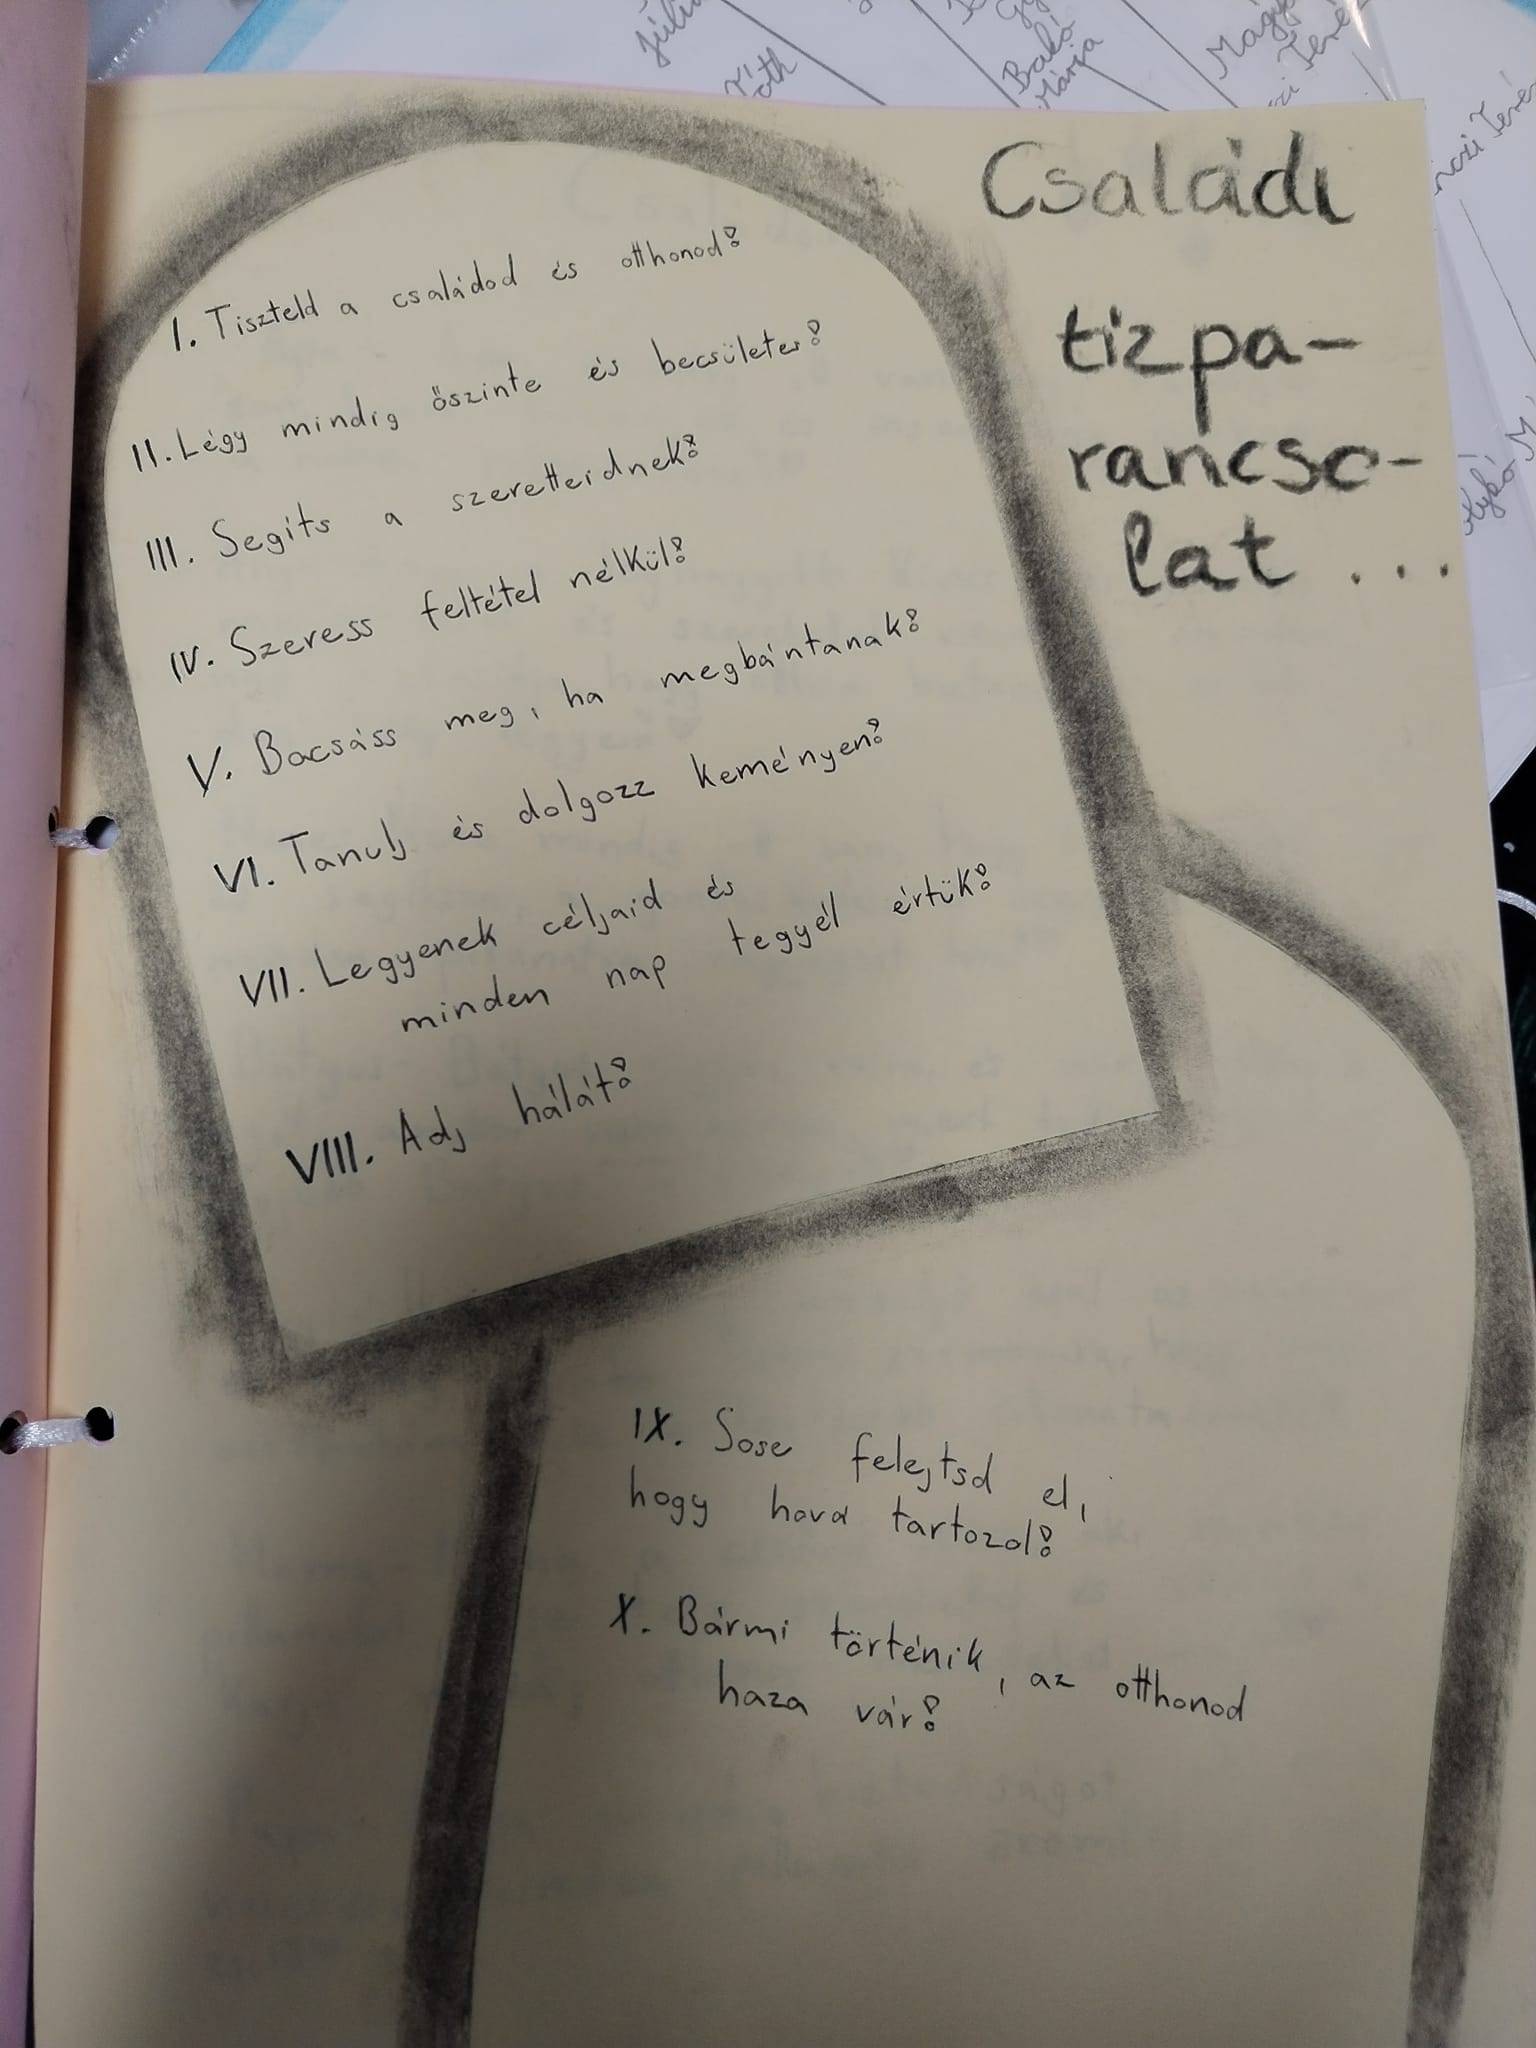 Családi
tízpa-
rancso-
lat ...
I. Tiszteld a családod és otthonod!
II. Légy mindig őszinte és becsületes!
III. Segíts a szeretteidnek!
IV. Szeress feltétel nélkül!
V. Bocsáss meg, ha megbántanak!
VI. Tanulj és dolgozz keményen!
VII. Legyenek céljaid és
minden nap tegyél értük!
VIII. Adj hálát!
IX. Sose felejtsd el,
hogy hová tartozol!
X. Bármi történik, az otthonod
haza vár!
Tóth
Bakó
Mária